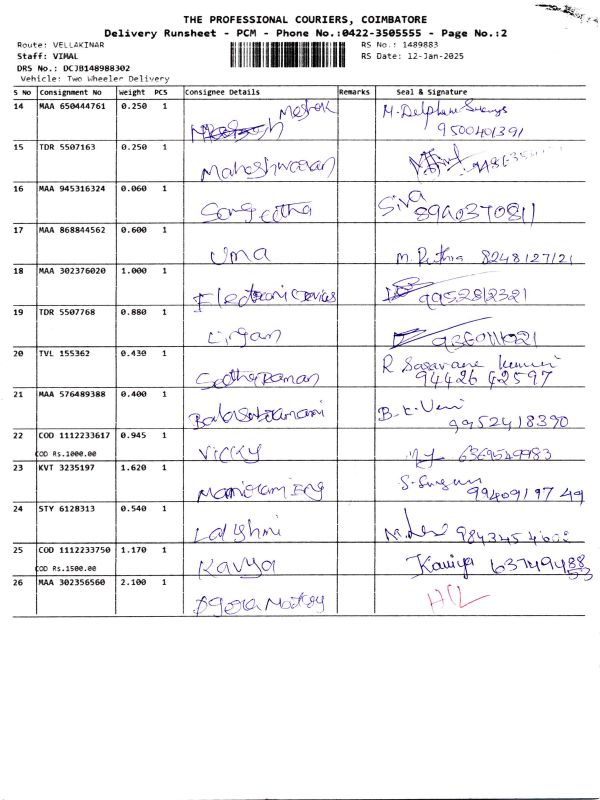 THE PROFESSIONAL COURIERS, COIMBATORE
Delivery Runsheet - PCM - Phone No.:0422-3505555 - Page No.:2
Route: VELLAKINAR RS No.: 1489883
Staff: VIMAL RS Date: 12-Jan-2025
DRS No.: DCJB148988302
Vehicle: Two Wheeler Delivery
S No Consignment No Weight PCS Consignee Details Remarks Seal & Signature
14 MAA 650444761 0.250 1
M.Delphin
9500401391
15 TDR 5507163 0.250 1
Maheshwaran
16 MAA 945316324 0.060 1
Sangeetha Siva
8940370811
17 MAA 868844562 0.600 1
Uma 8248127121
18 MAA 302376020 1.000 1
Electronic Devices 9952812321
19 TDR 5507768 0.880 1
Lingan
20 TVL 155362 0.430 1
R
94426 42597
21 MAA 576489388 0.400 1
B.K.Veni
9952418390
22 COD 1112233617 0.945 1
COD Rs.1000.00 Vicky 6369549983
23 KVT 3235197 1.620 1
9940919749
24 STY 6128313 0.540 1
25 COD 1112233750 1.170 1
COD Rs.1500.00 Kavya Kaviya
26 MAA 302356560 2.100 1